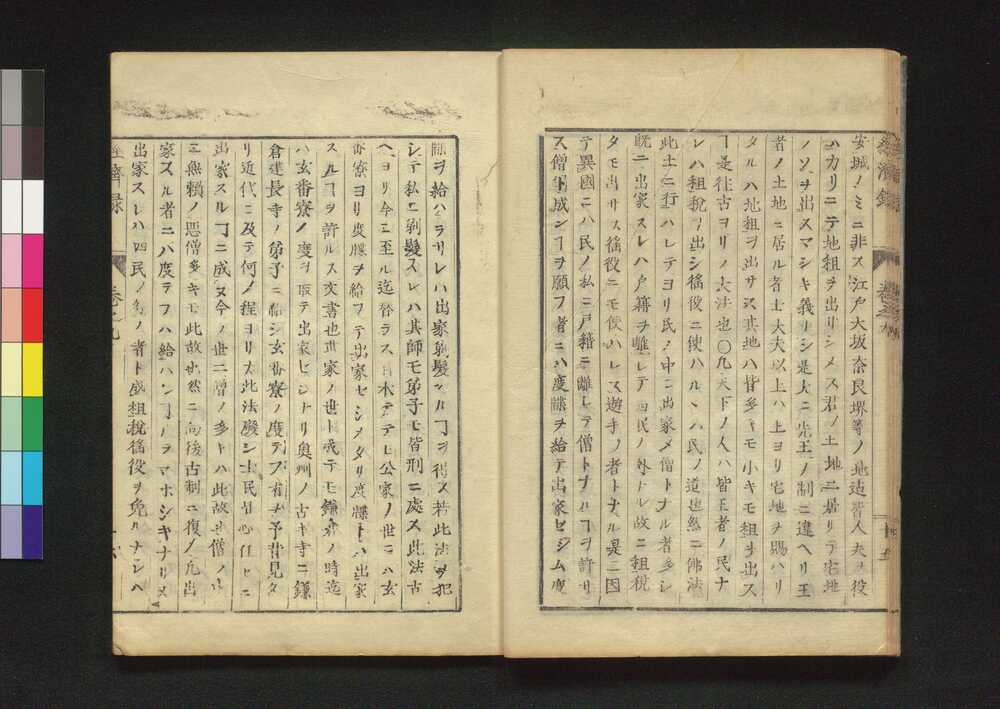 安城ノミニ非ス江戸大坂奈良堺等ノ地造唘人夫ヲ役
ハカリニテ地租ヲ出リシメス君ノ土地ニ居リテ宅地
ノソヲ出スマシキ義リシ是大ニ先王ノ制ニ違ヘリ王
者ノ土地ニ居ル者士大夫以上ハ上ヨリ宅地ヲ賜ハリ
タルハ地租ヲ出サス其地ハ皆多キモ小キモ租ヲ出ス
ヿ是往古ヨリノ大法也〇凡天下ノ人ハ皆王者ノ民ナ
レハ租税ヲ出シ徭役ニ使ハルヽハ民ノ道也然ニ佛法
此土ニ行ハレテヨリ民ノ中ニ出家メ僧トナル者多シ
既ニ出家スレハ戸籍ヲ離レテ四民ノ外トル故ニ租税
タモ出サス徭役ニモ使ハレス遊手ノ者トナル是ニ因
テ異國ニハ民ノ私ニ戸籍ニ離レテ僧トナルヿヲ許サ
ス僧ト成ンヿヲ願フ者ニハ度牒ヲ給テ出家セシム度
經濟録
十五
牒ヲ給ハラサレハ出家剃髮スルヿヲ得ス若此法ヲ犯
シテ私ニ剃髮スレハ其師モ弟子モ皆刑ニ處ス此法古
ヘヨリ今ニ至ル迄替ラス日本ニテモ公家ノ世ニハ玄
番寮ヨリ度牒ヲ給フテ出家セシメタリ度牒トハ出家
スルヿヲ許ル文書也武家ノ世ト成テモ鎌倉ノ時迄
ハ玄番寮ノ度ヲ取テ出家セシトソ奥州ノ古キ寺ニ鎌
倉建長寺ノ弟子ニ給シ玄番寮ノ度テフ有ヲ予昔見タ
リ近代ニ及テ何ノ程ヨリカ此法廢シ士民皆心任セニ
出家スルヿニ成ヌ今ノ世ニ僧ノ多キハ此故也僧ノ中
ニ無頼ノ悪僧多キモ此故也然ニ向後古制ニ復メ凡出
家スル者ニハ度テフヲ給ハンヿアラマホシキナリメ
出家スレハ四民ノ名ノ者ト成租税徭役ヲ免ルナレハ
經濟録
巻之九